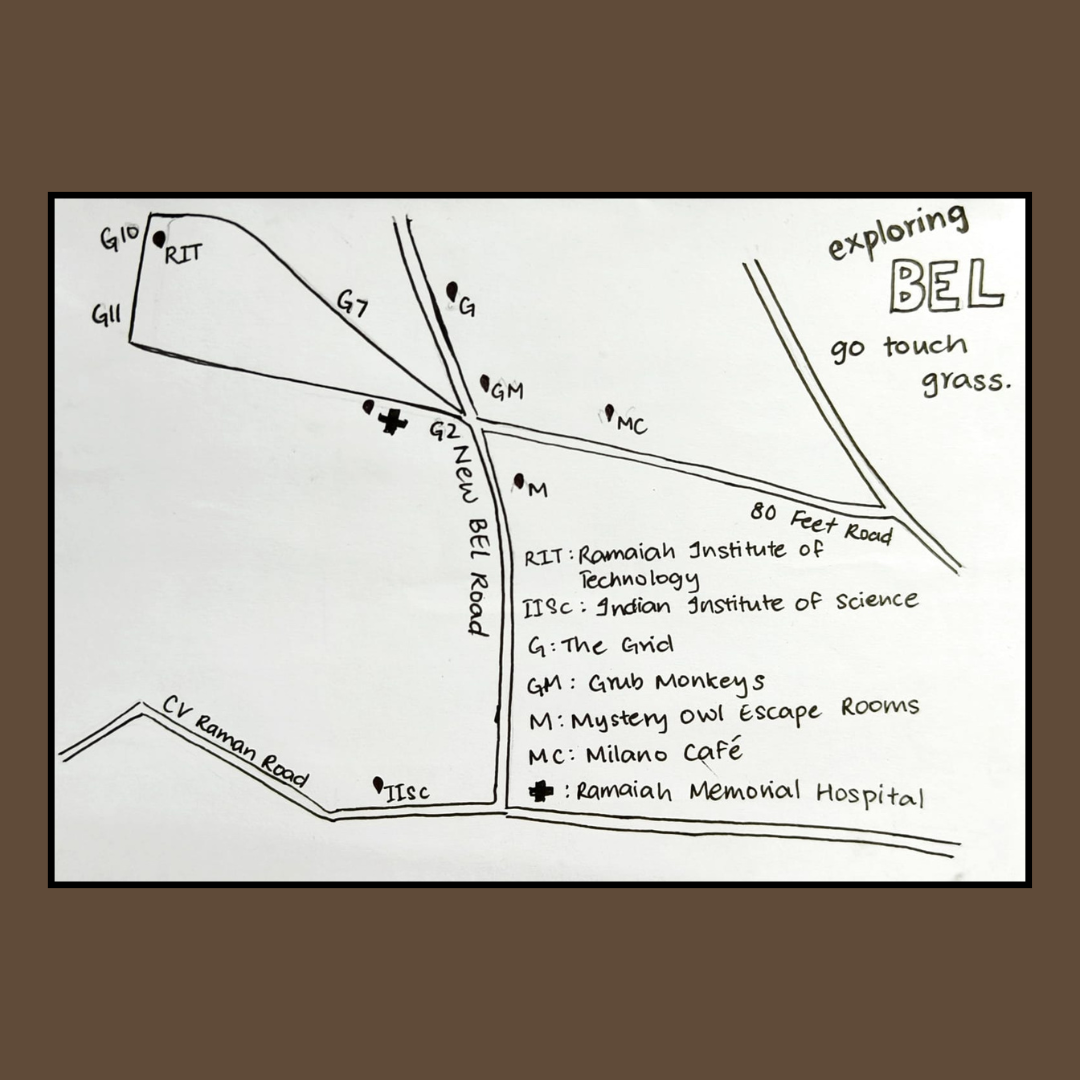 exploring
BEL
go touch
grass.
G10
RIT
G11
G7
G
GM
MC
G2
New BEL Road
M
80 Feet Road
RIT : Ramaiah Institute of
Technology
IISc : Indian Institute of Science
G : The Grid
GM : Grub Monkeys
M : Mystery Owl Escape Rooms
MC : Milano Café
: Ramaiah Memorial Hospital
CV Raman Road
IISc